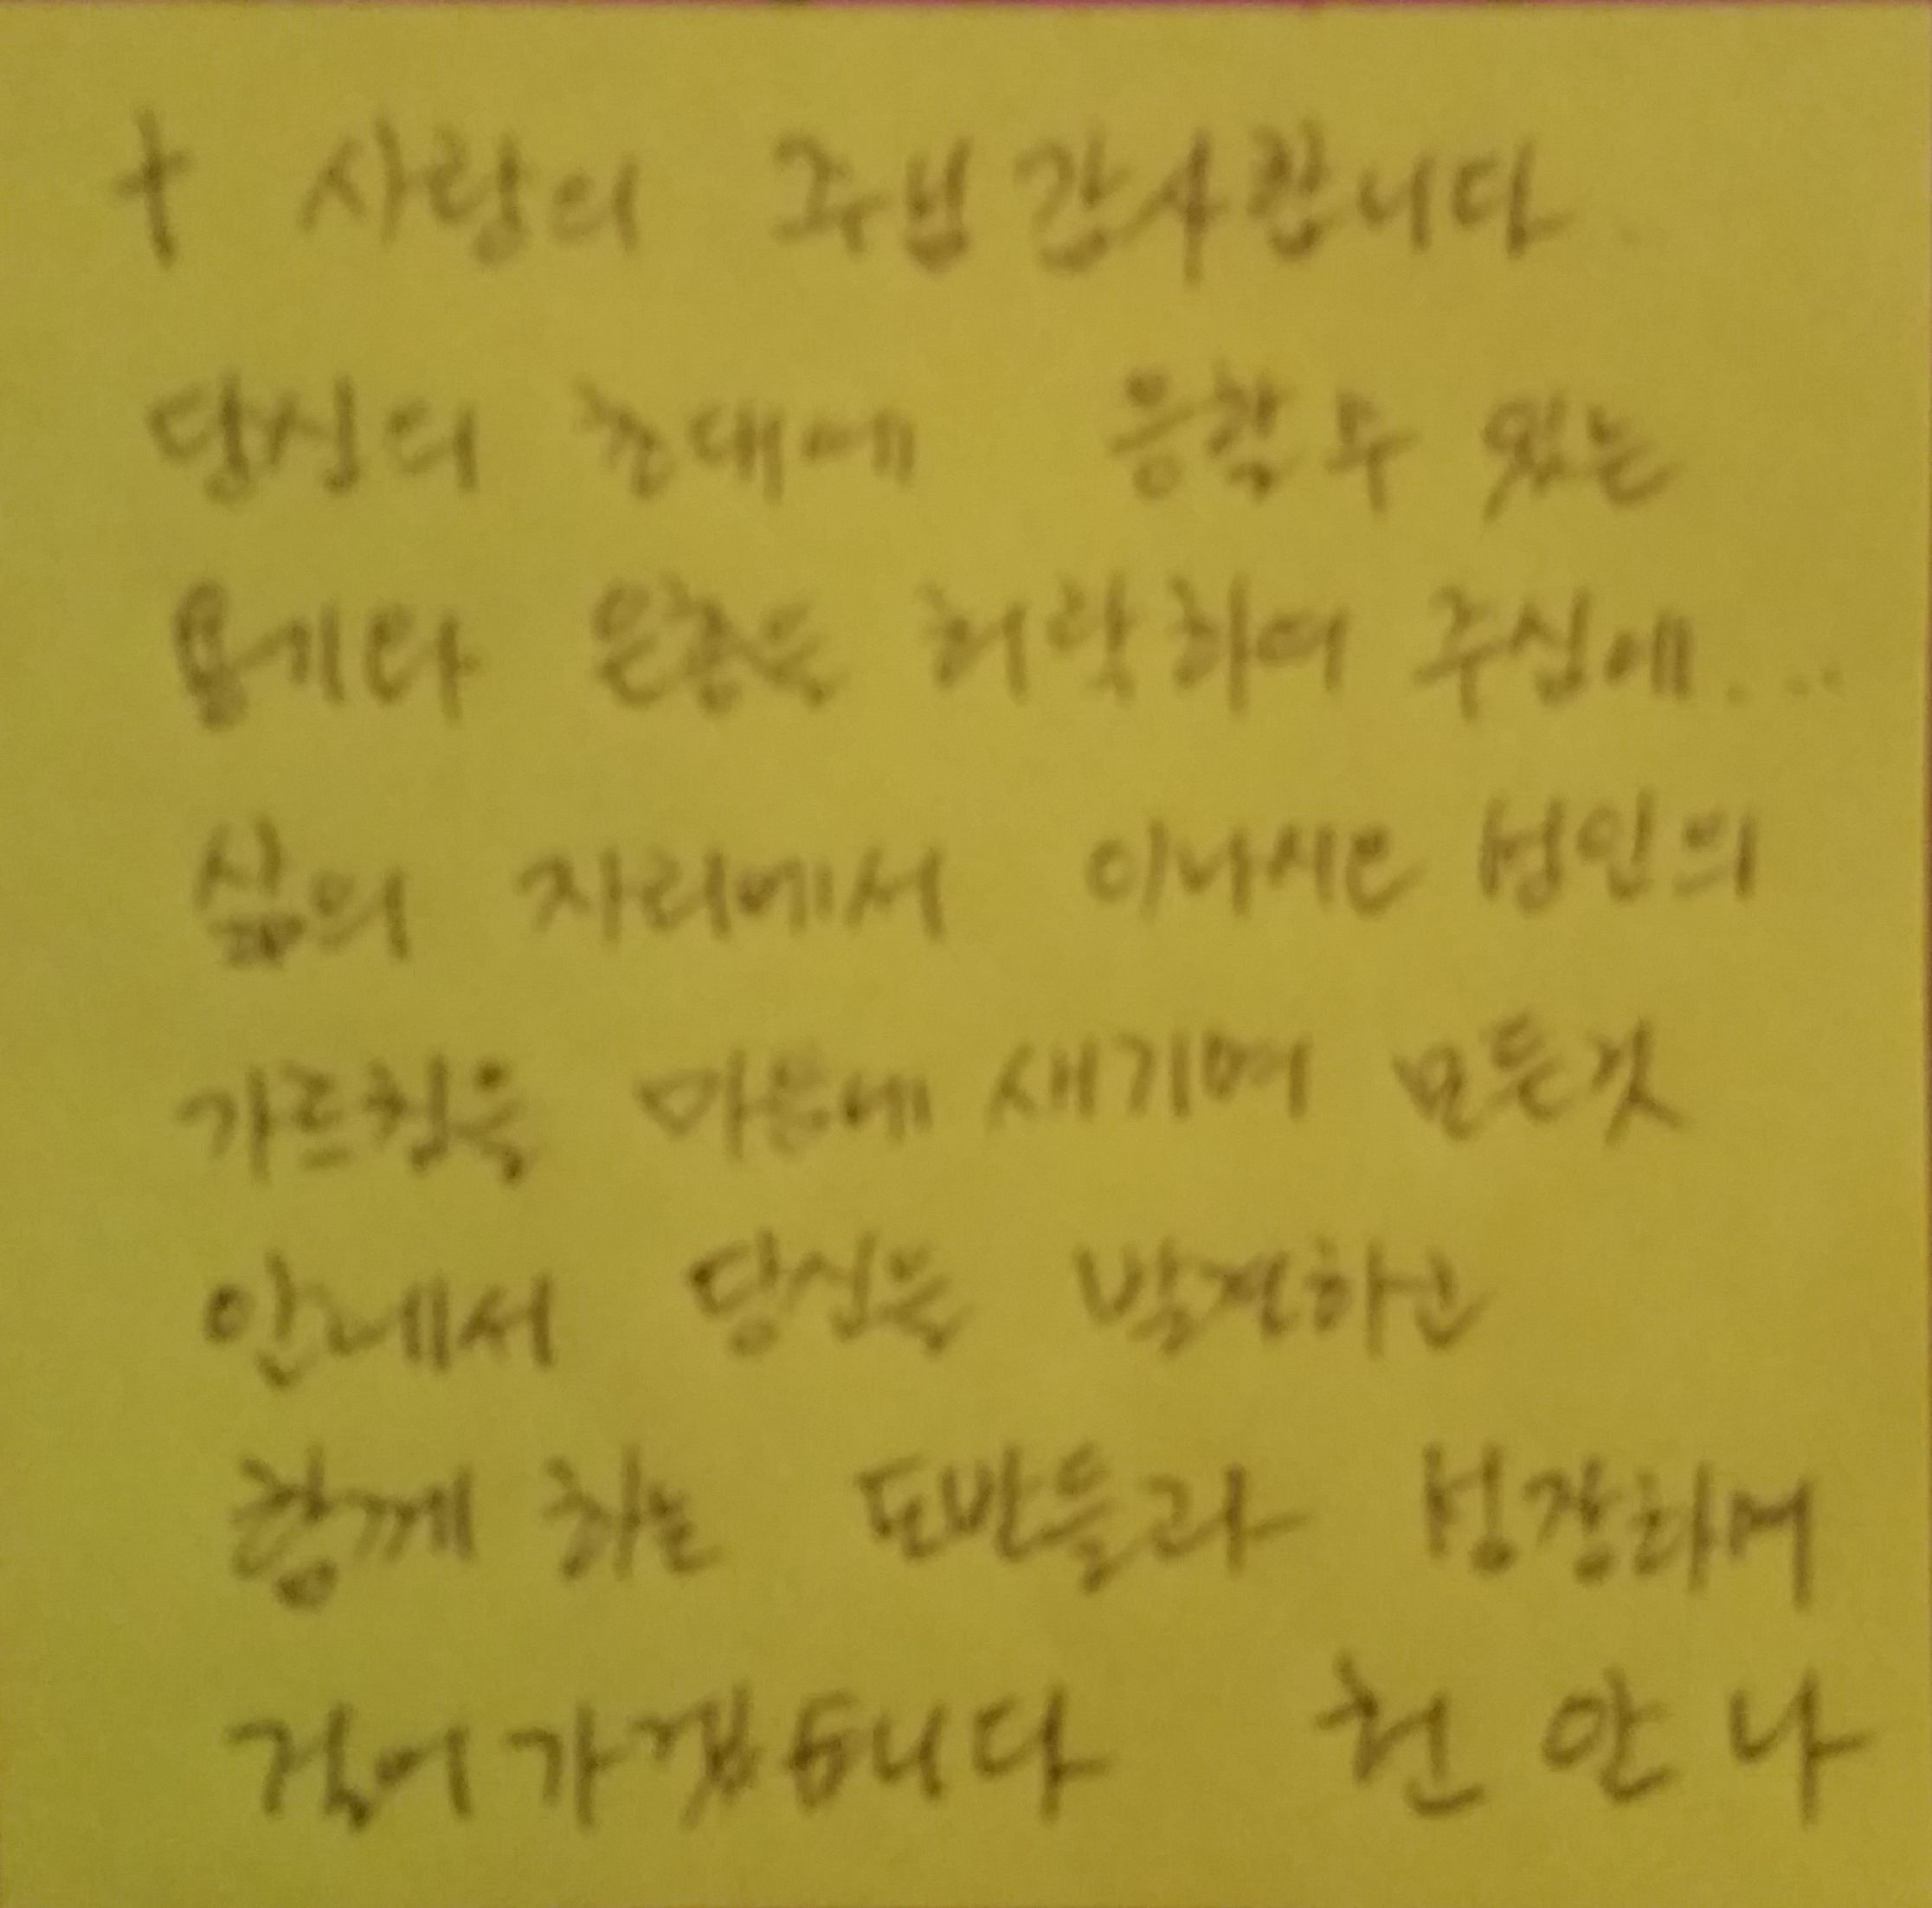 + 사랑의 주님 감사합니다
당신의 초대에 응할 수 있는
용기와 은총을 허락하여 주심에...
삶의 자리에서 이냐시오 성인의
가르침을 마음에 새기며 모든것
안에서 당신을 발견하고
함께 하는 도반들과 성장하며
걸어가겠습니다 천 안 나